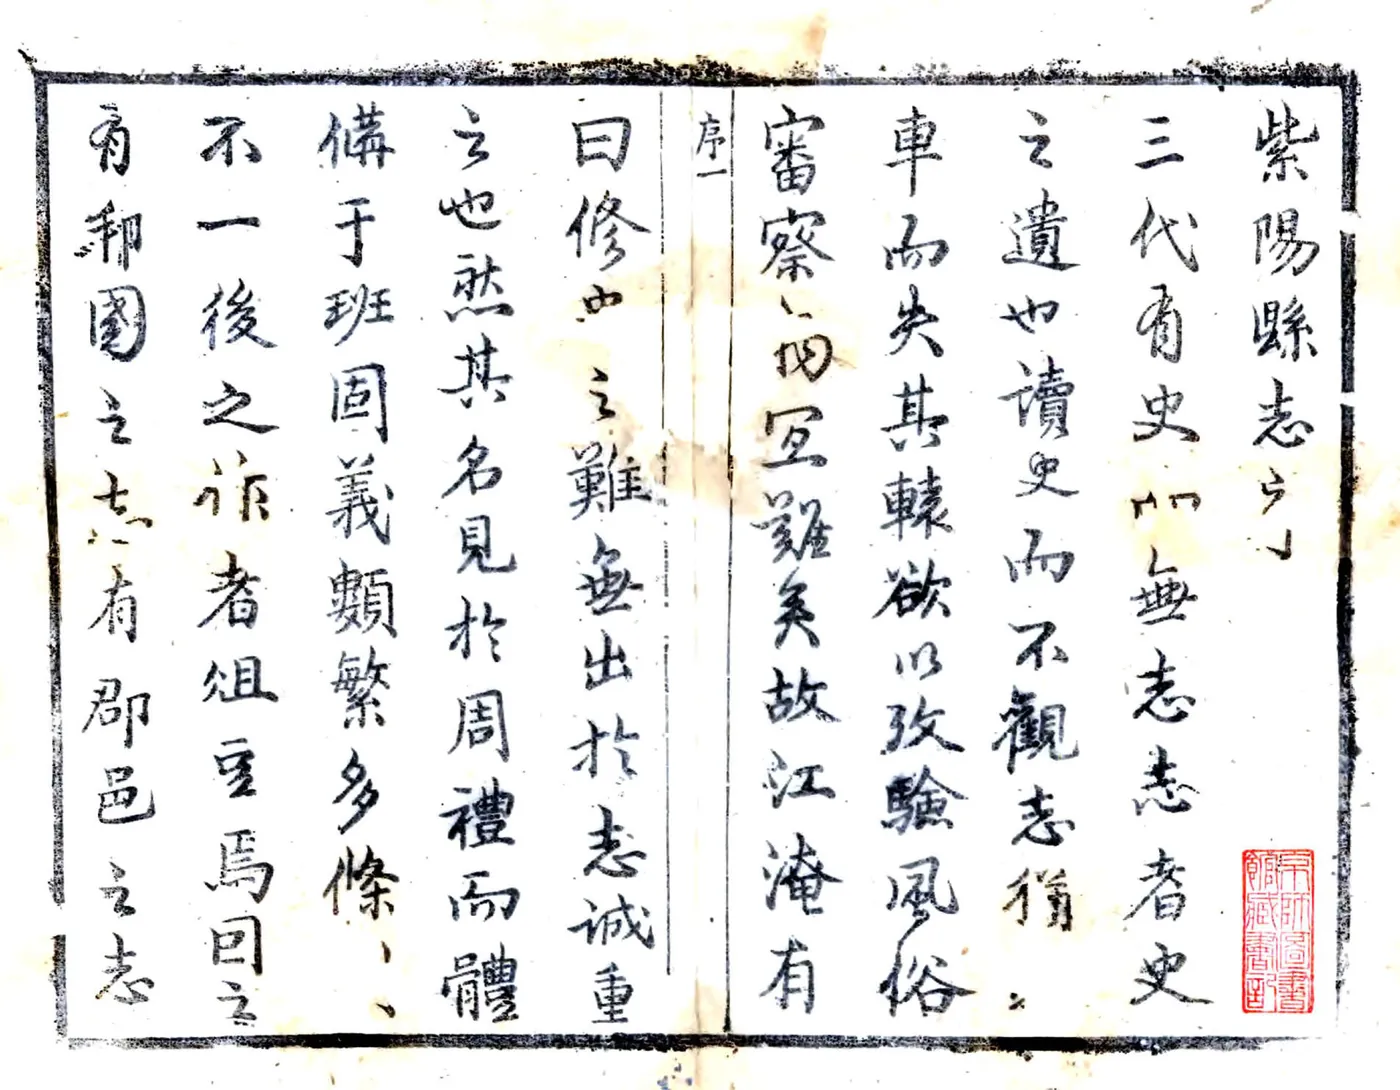 紫陽縣志序
三代有史無志志者史
之遺也讀史而不觀志猶
車而失其轅欲以攷驗風俗
審察宜難矣故江淹有
序一
曰修史之難無出於志誠重
之也然其名見於周禮而體
備于班固義類繁多條
不一後之作者俎豆焉因之
有邦國之志有郡邑之志
京師圖書館藏書記